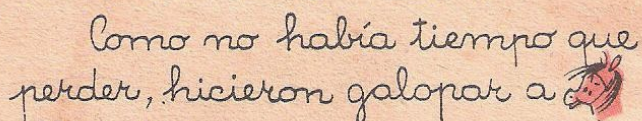 Como no había tiempo que
perder, hicieron galopar a